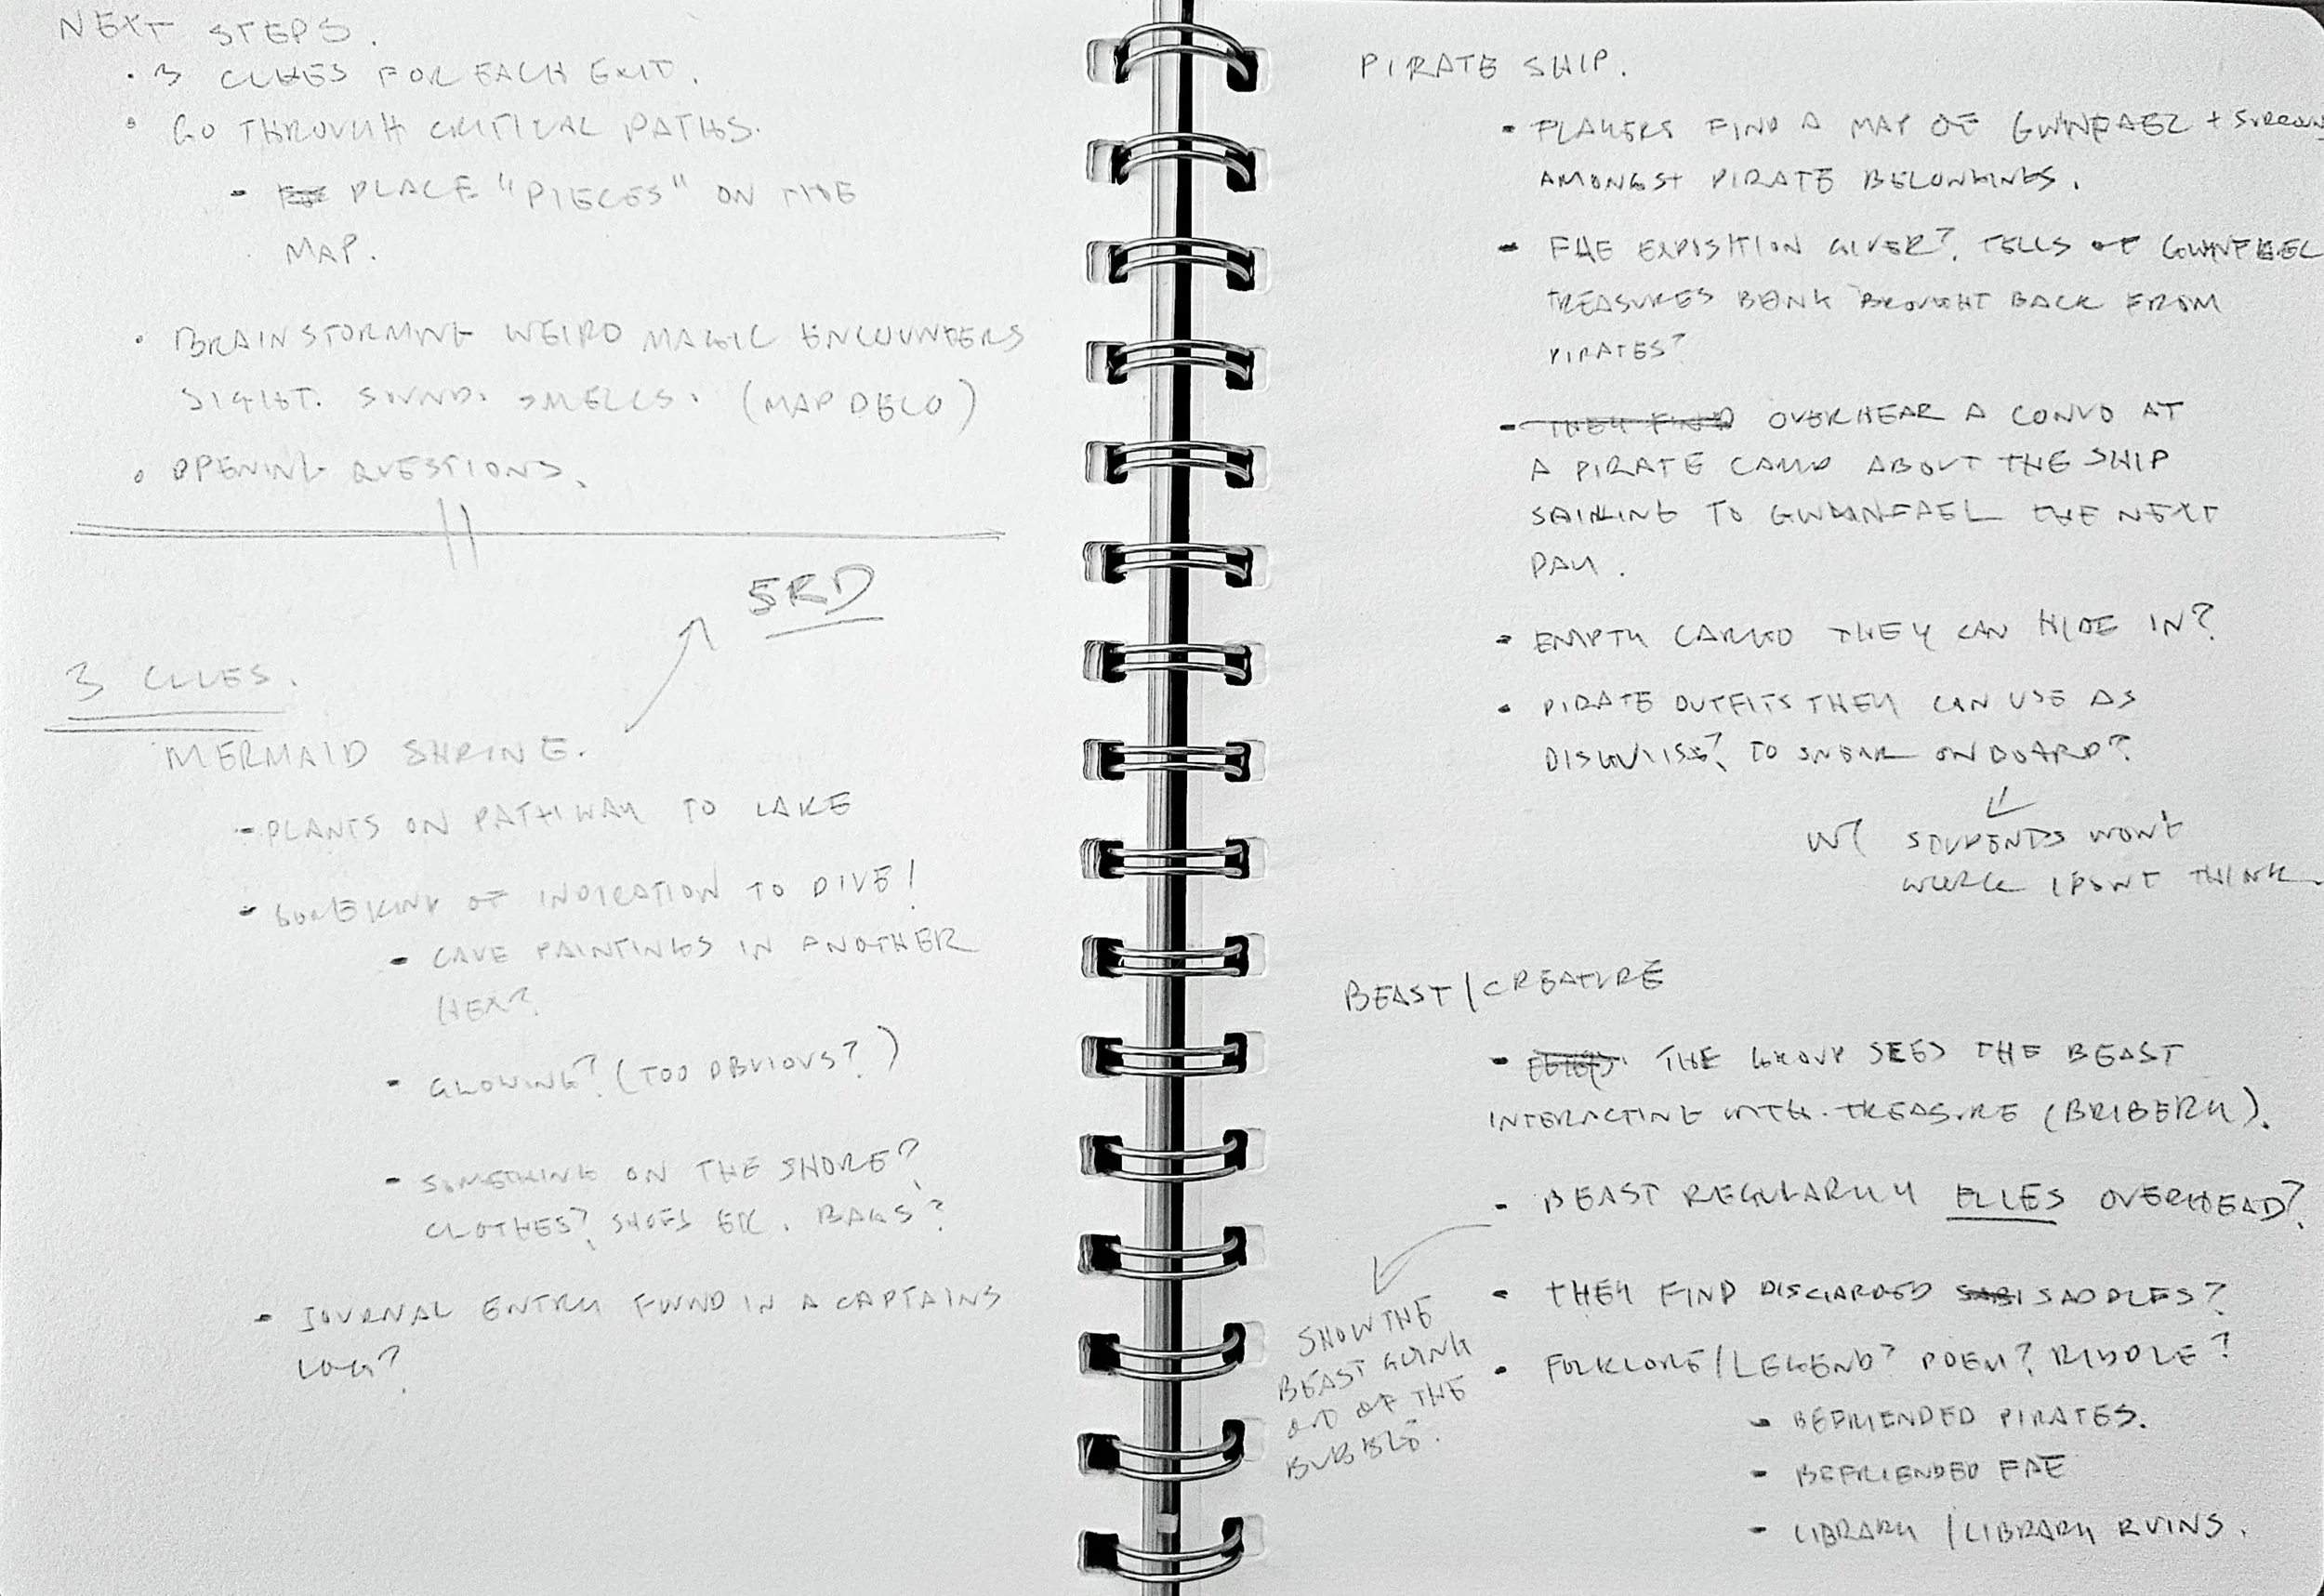 NEXT STEPS.
· 3 CLUES FOR EACH EXIT.
· GO THROUGH CRITICAL PATHS.
- PLACE "PIECES" ON THE
MAP.
· BRAINSTORMING WEIRD MAGIC ENCOUNTERS
SIGHT. SOUND. SMELLS. (MAP DECO)
· OPENING QUESTIONS.
5RD
3 CLUES.
MERMAID SHRINE.
- PLANTS ON PATHWAY TO LAKE
- SOMEKIND OF INDICATION TO DIVE!
- CAVE PAINTINGS IN ANOTHER
HEX?
- GLOWING? (TOO OBVIOUS?)
- SOMETHING ON THE SHORE?
CLOTHES? SHOES BAGS?
- JOURNAL ENTRY FOUND IN A CAPTAINS
LOG?
PIRATE SHIP.
- PLAYERS FIND A MAP OF GWNFAEL +
AMONGST PIRATE BELONGINGS.
- FAE EXPOSITION GIVER? TELLS OF
TREASURES BEING BROUGHT BACK FROM
PIRATES?
- THEY FIND OVERHEAR A CONVO AT
A PIRATE CAMP ABOUT THE SHIP
SAILING TO THE NEXT
DAY.
- EMPTY CARGO THEY CAN HIDE IN?
- PIRATE OUTFITS THEY CAN USE AS
DISGUISE? TO SNEAK ONBOARD?
W/ STUDENTS WON'T
WORK I DON'T THINK.
BEAST/CREATURE
- THE GROUP SEES THE BEAST
INTERACTING WITH TREASURE (BRIBERY).
- BEAST REGULARLY FLIES OVERHEAD?
SHOW THE
BEAST GOING
OUT OF THE
BUBBLE.
- THEY FIND DISCARDED SADDLES?
- FOLKLORE/LEGEND? POEM? RIDDLE?
- BEFRIENDED PIRATES.
- BEFRIENDED FAE
- LIBRARY / LIBRARY RUINS.